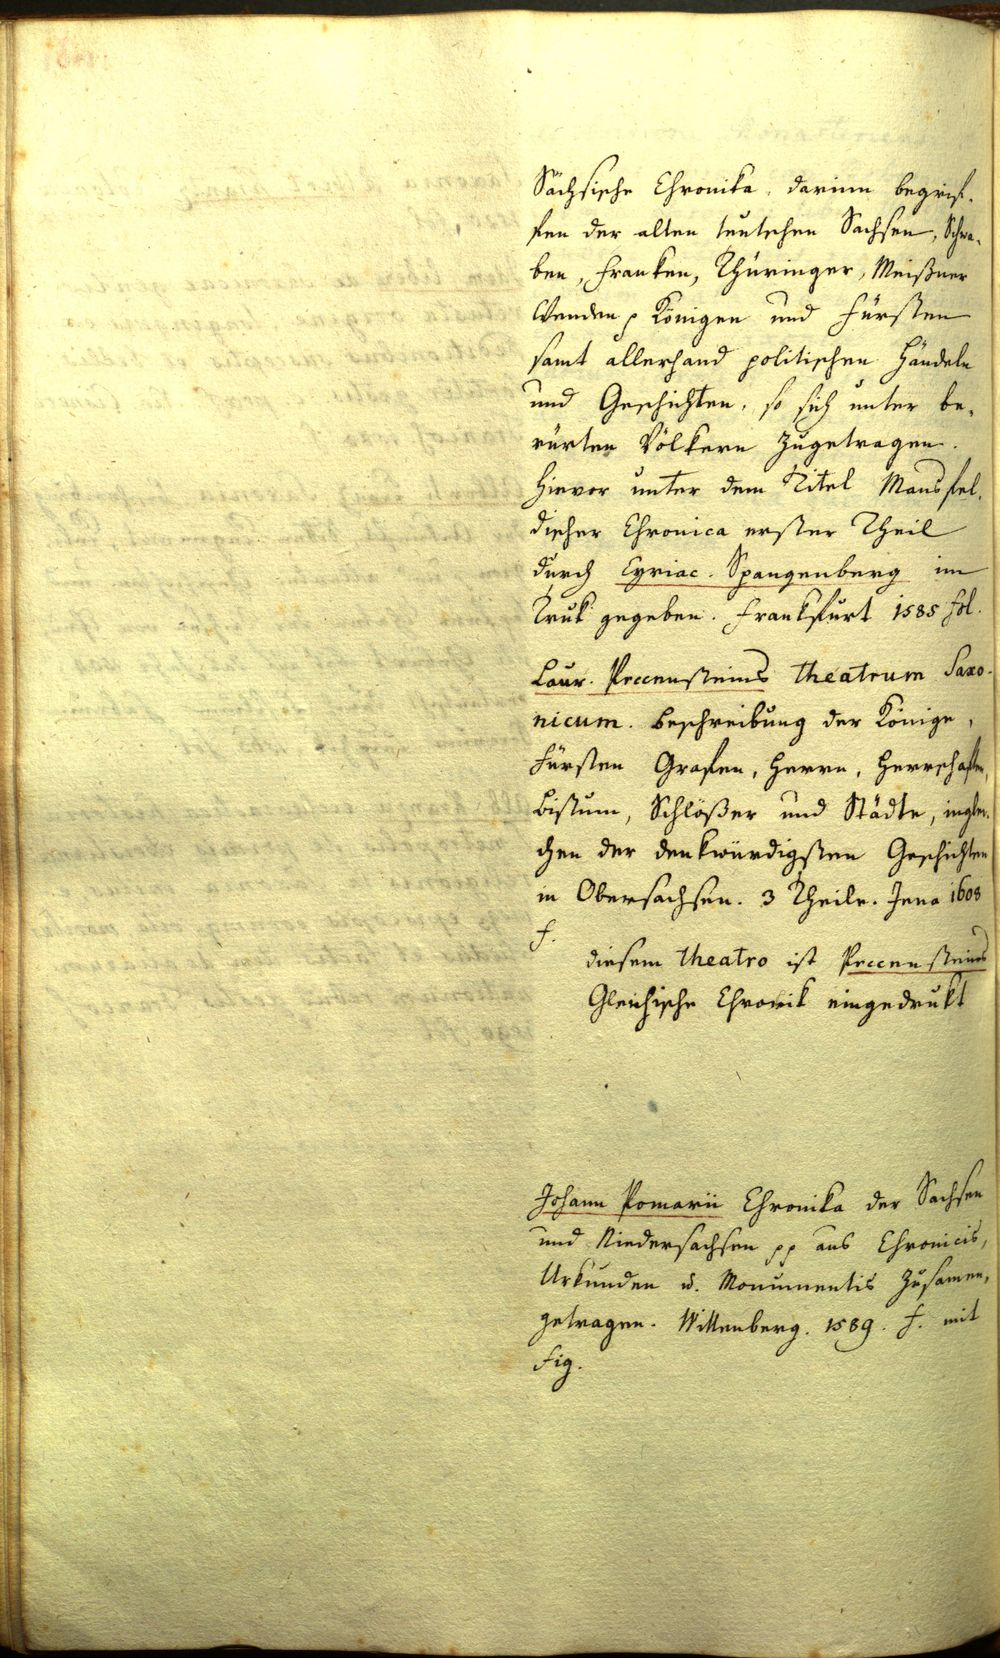 Sächsische Chronika, darinn begrif-
fen der alten teutschen Sachsen, Schwa-
ben, Franken, Thüringer, Meißner
Wenden p Königen und Fürsten
samt allerhand politischen Händeln
und Geschichten, so sich unter be-
rürten Völkern zugetragen.
Hievor unter dem Titel Mansfel-
discher Chronica erster Theil
durch Cyriac. Spangenberg im
Truk gegeben. Frankfurt 1585 fol.
Laur. Peccensteins theatrum Saxo-
nicum. Beschreibung der Könige,
Fürsten Grafen, Herrn, Herrschaften,
Bistum, Schlößer und Städte, inglei-
chen der denkwürdigsten Geschichten
in Obersachsen. 3 Theile. Jena 1608
f.
diesem theatro ist Peccensteins
Gleichische Chronik eingedrukt
Johann Pomarii Chronika der Sachsen
und Niedersachsen pp aus Chronicis,
Urkunden u. Monumentis zusamen-
getragen. Wittenberg. 1589. f. mit
Fig.